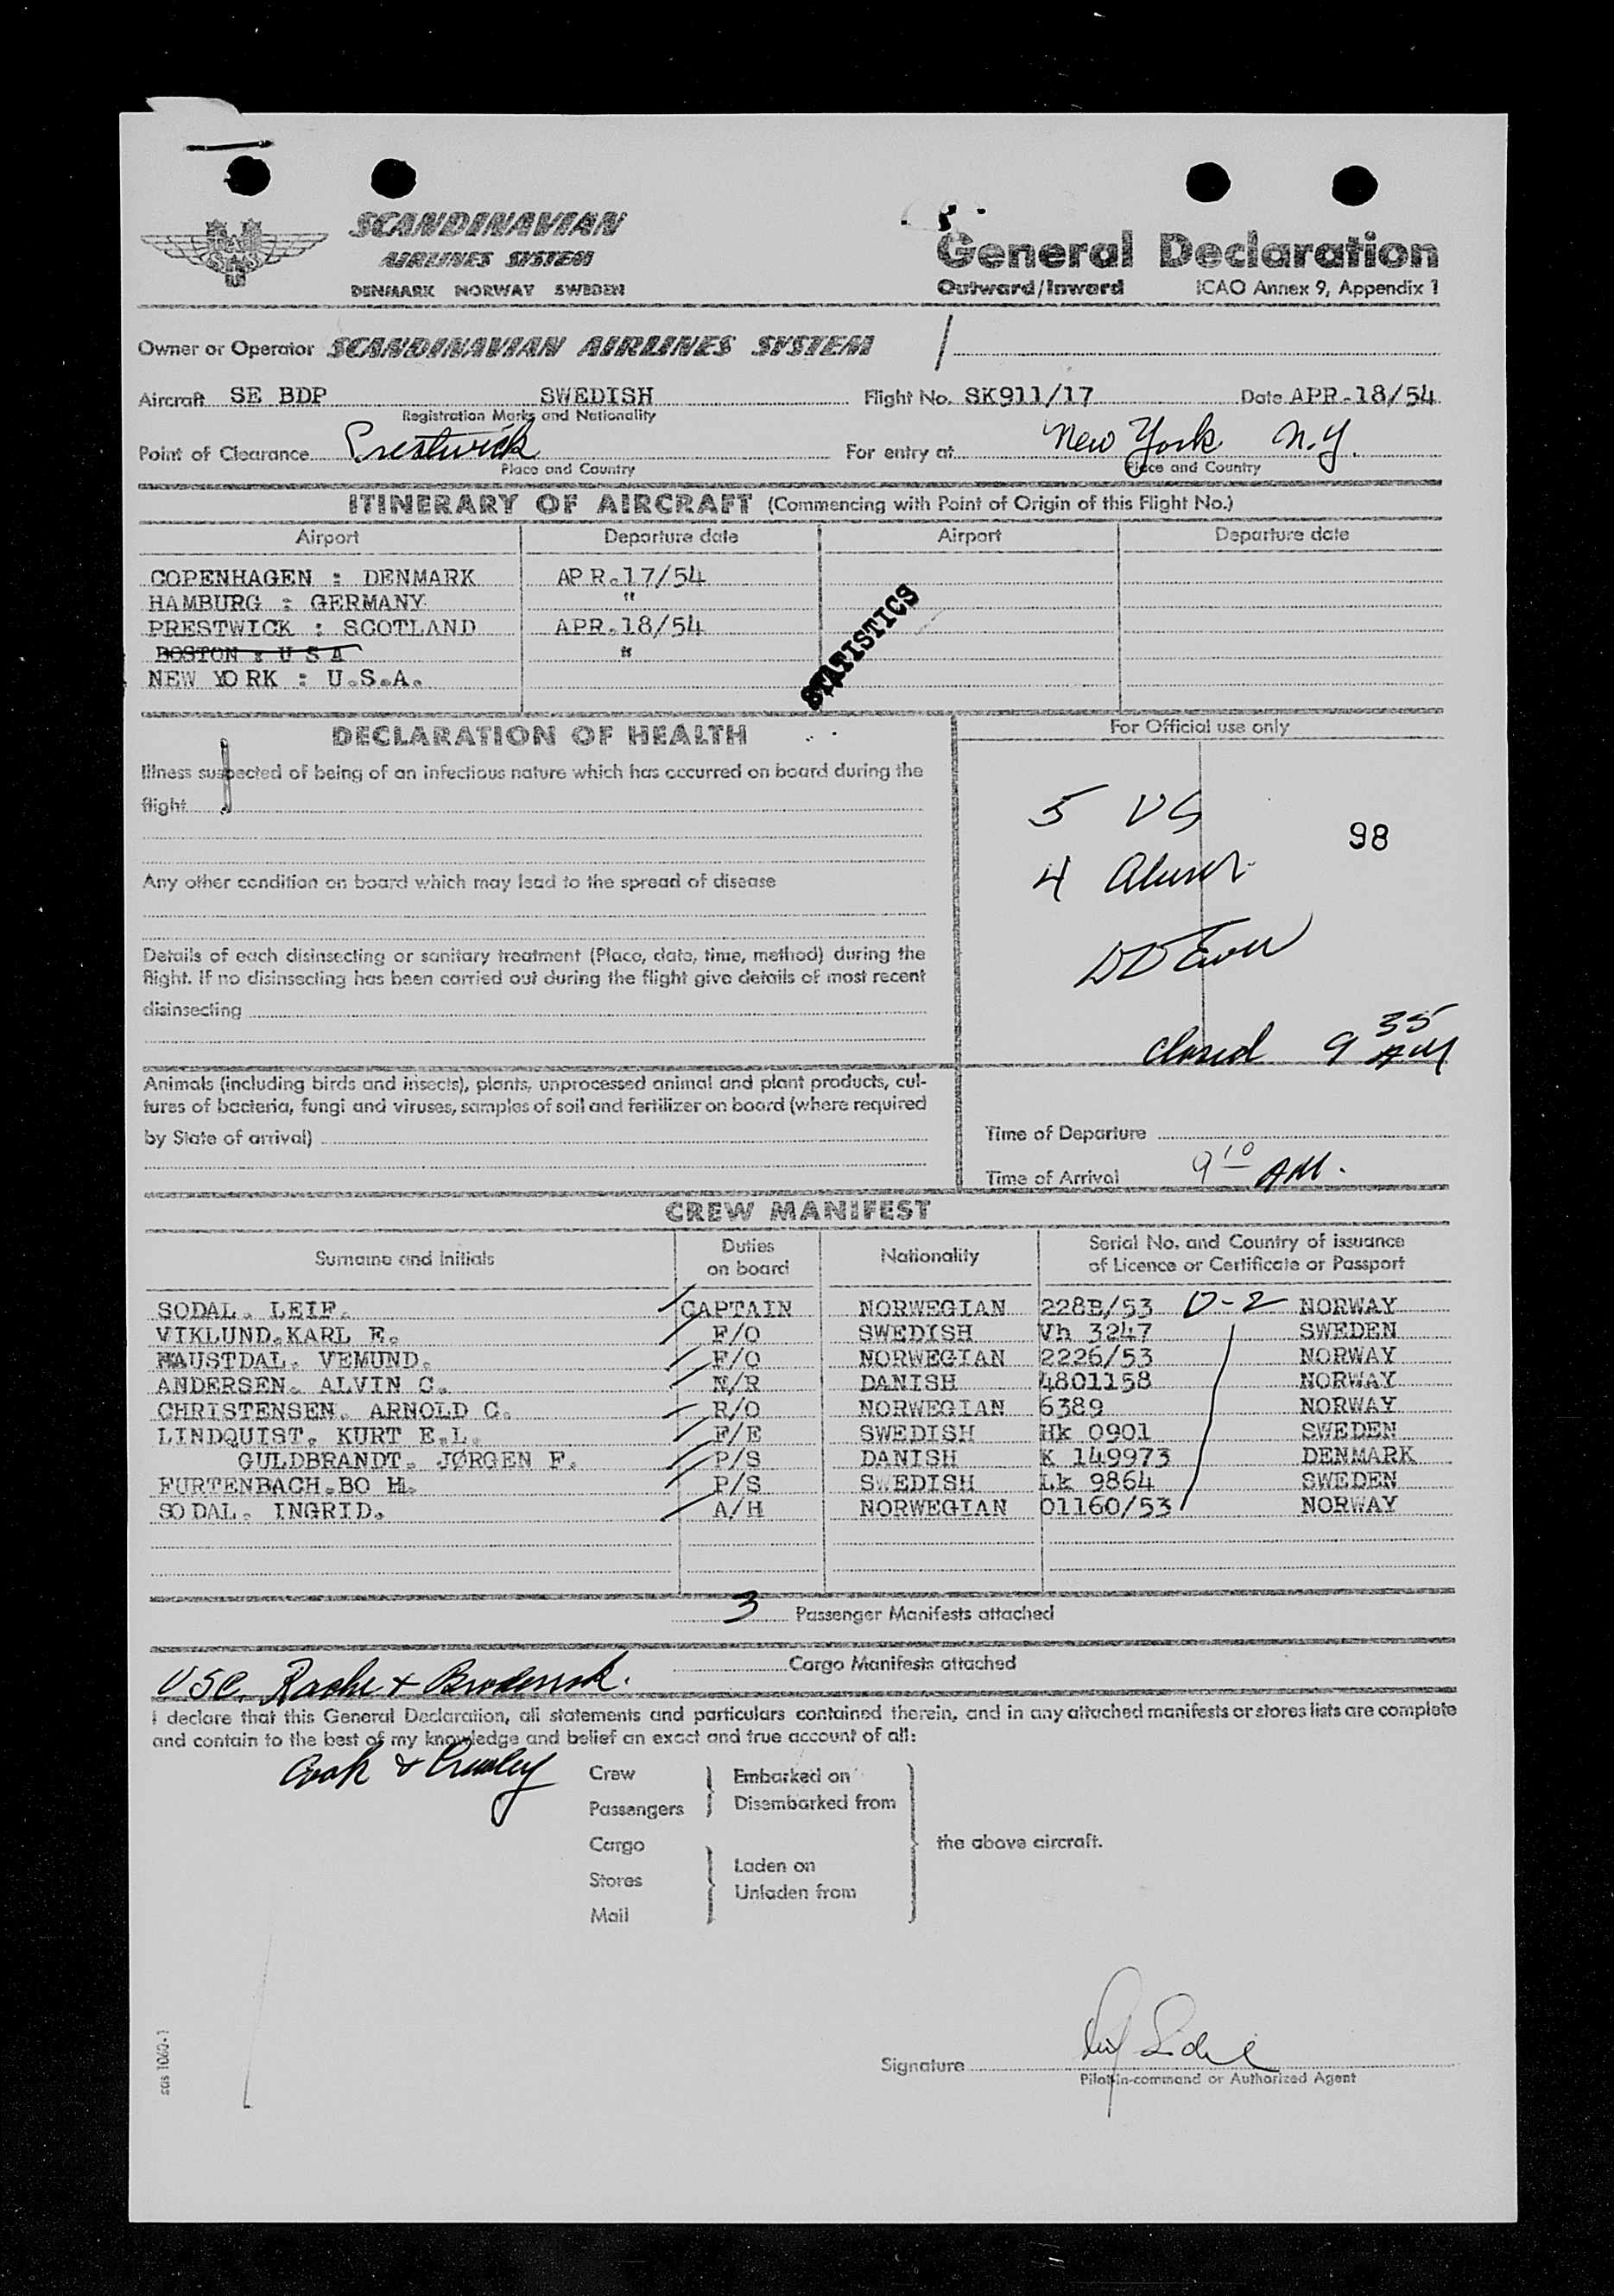 SCANDINAVIAN
AIRLINES SYSTEM
DENMARK NORWAY SWEDEN
General Declaration
Outward/Inward ICAO Annex 9, Appendix 1
Owner or Operator SCANDINAVIAN AIRLINES SYSTEM
Aircraft SE BDP SWEDISH Flight No. SK911/17 Date APR.18/54
Registration Marks and Nationality
Point of Clearance Prestwick For entry at New York N.Y.
Place and Country Place and Country
ITINERARY OF AIRCRAFT (Commencing with Point of Origin of this Flight No.)
Airport Departure date Airport Departure date
COPENHAGEN : DENMARK APR.17/54
HAMBURG : GERMANY "
PRESTWICK : SCOTLAND APR.18/54
BOSTON : U S A "
NEW YORK : U.S.A.
STATISTICS
DECLARATION OF HEALTH
Illness suspected of being of an infectious nature which has occurred on board during the
flight
Any other condition on board which may lead to the spread of disease
Details of each disinsecting or sanitary treatment (Place, date, time, method) during the
flight. If no disinsecting has been carried out during the flight give details of most recent
disinsecting
Animals (including birds and insects), plants, unprocessed animal and plant products, cul-
tures of bacteria, fungi and viruses, samples of soil and fertilizer on board (where required
by State of arrival)
For Official use only
5 US
98
4
closed 9 35 AM
Time of Departure
Time of Arrival 9 10 AM.
CREW MANIFEST
Surname and initials Duties on board Nationality Serial No. and Country of issuance of Licence or Certificate or Passport
SODAL. LEIF. CAPTAIN NORWEGIAN 228B/53 D-2 NORWAY
VIKLUND.KARL E. F/O SWEDISH Vh 3247 SWEDEN
HAUSTDAL. VEMUND. F/O NORWEGIAN 2226/53 NORWAY
ANDERSEN. ALVIN C. N/R DANISH 4801158 NORWAY
CHRISTENSEN. ARNOLD C. R/O NORWEGIAN 6389 NORWAY
LINDQUIST. KURT E.L. F/E SWEDISH Hk 0901 SWEDEN
GULDBRANDT. JØRGEN F. P/S DANISH K 149973 DENMARK
FURTENBACH.BO H. P/S SWEDISH Lk 9864 SWEDEN
SODAL. INGRID. A/H NORWEGIAN 01160/53 NORWAY
3 Passenger Manifests attached
Cargo Manifests attached
USC. Roche + Broderick.
I declare that this General Declaration, all statements and particulars contained therein, and in any attached manifests or stores lists are complete
and contain to the best of my knowledge and belief an exact and true account of all:
Cook & Crowley
Crew Embarked on
Passengers Disembarked from
Cargo the above aircraft.
Stores Laden on
Unladen from
Mail
Signature Leif Sodal
Pilot-in-command or Authorized Agent
sas 1060-1